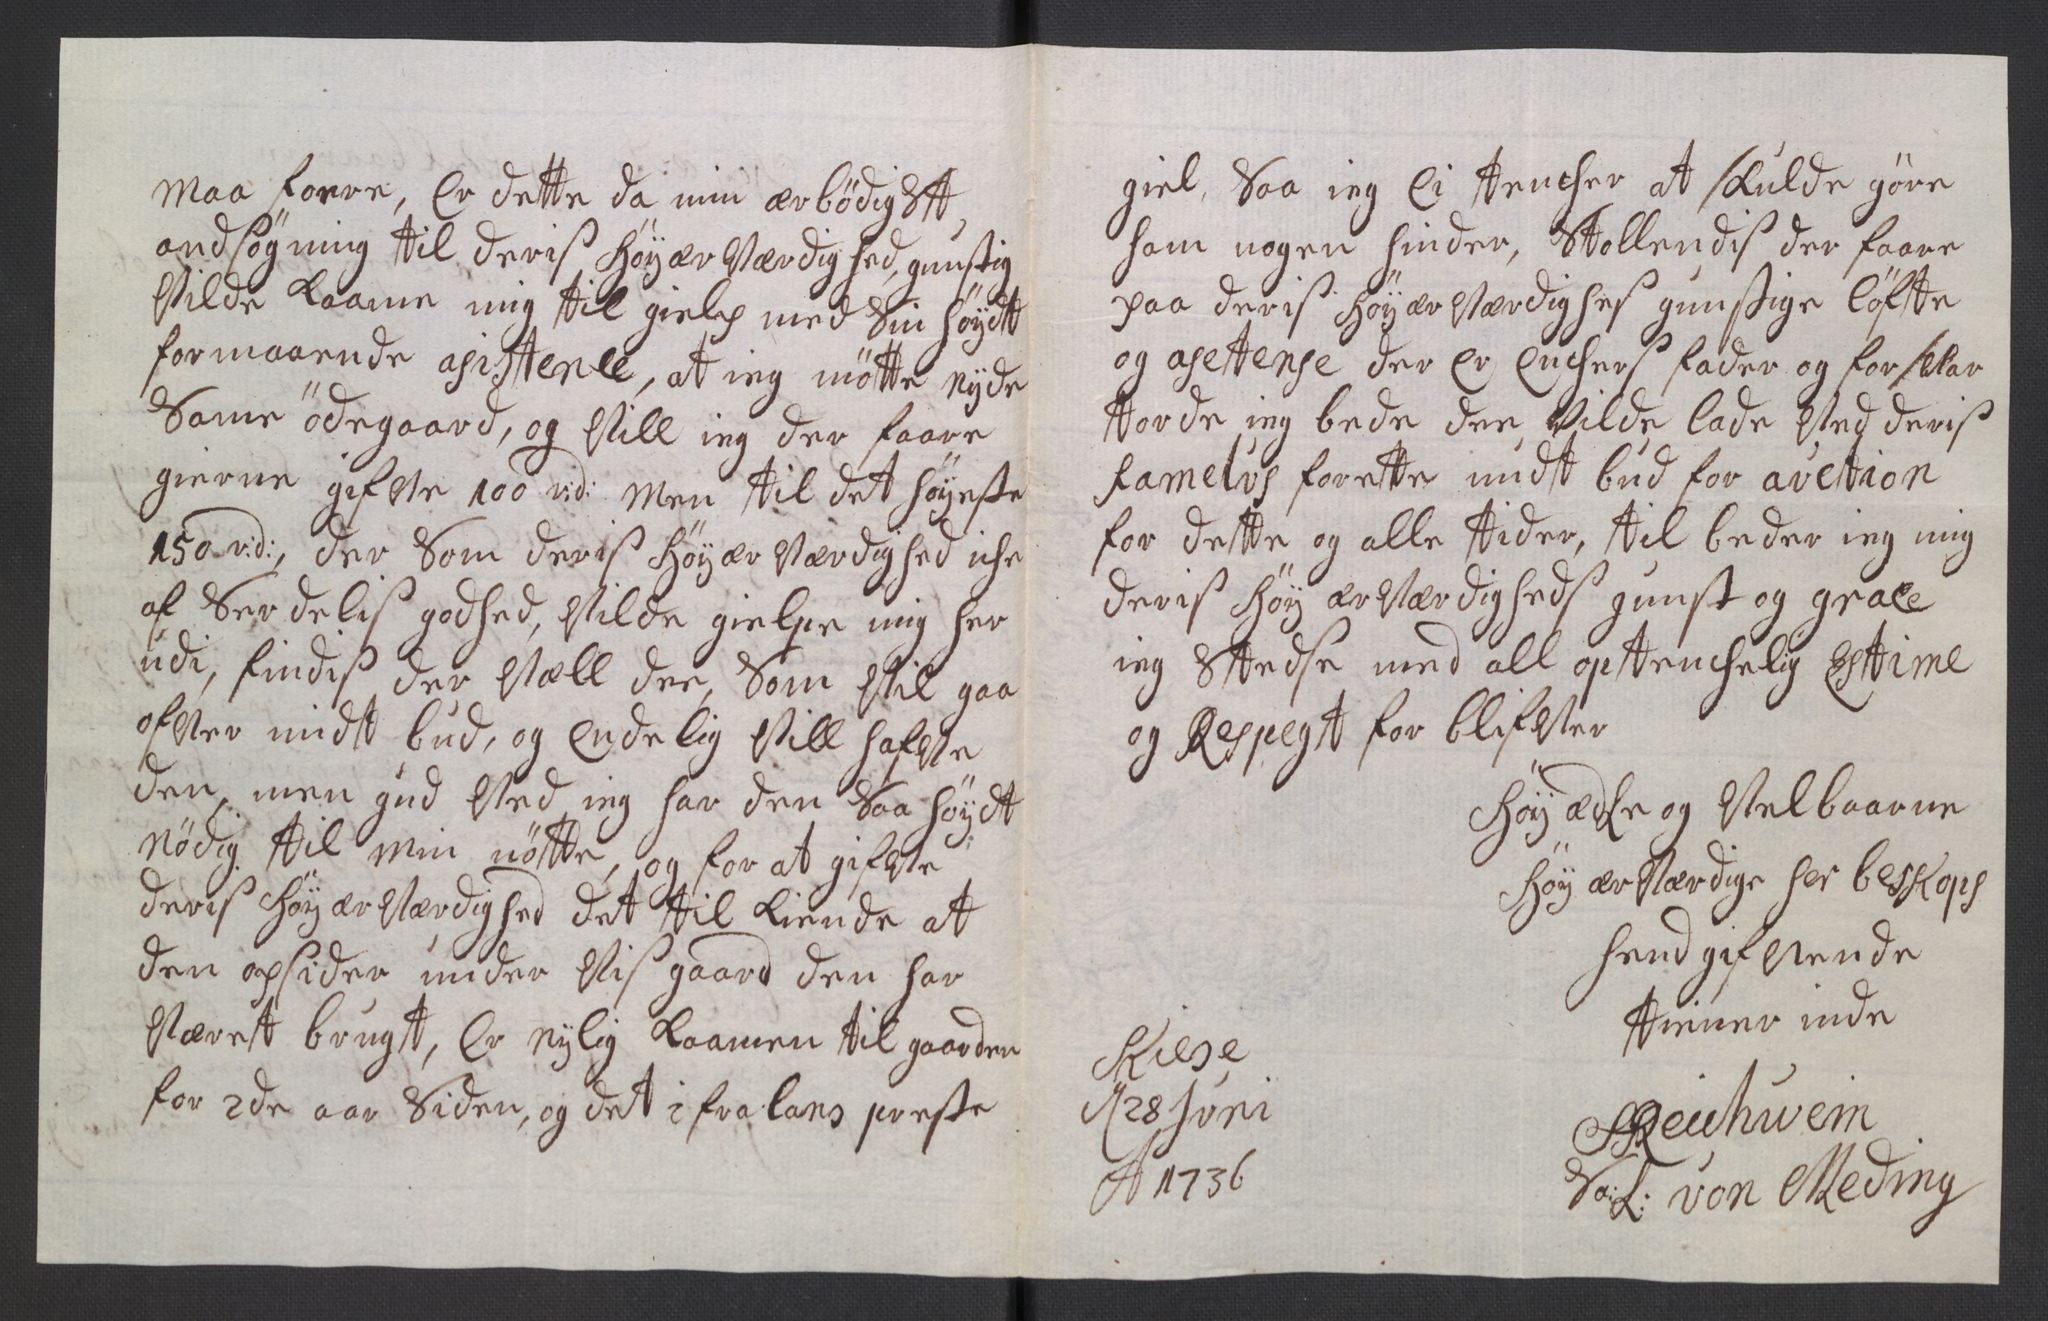 maa forre, er dette da min ærbödigstt
andsögning til deris höyærværdighed, gunstig
vilde kaame mig til gielp med Sin höydt
formaaende asisttence, at ieg mötte nyde
Same ödegaard, og vill ieg der faare
gierne gifve 100 rd: men til det höyeste
150 rd:, der Som deris höyærværdighed iche
af Serdelis godhed, vilde gielpe mig her
udi, findis der væll dee, Som vil gaa
ofver midt bud, og endelig vill hafve
den, men gud ved ieg har den Saa höydt
nödig til min nötte, og for at gifve
deris höyærværdighed det til kiende at
den opsider under vis gaard den har
været brugt, er nylig kaamen til gaarden
for 2de aar Siden, og det i fralans preste
giel, Saa ieg ei tencher at skulde göre
ham nogen hinder, Stollendis der faare
paa deris höyærværdighes gunstige löfte
og asetense der er enchers fader og forsvar
torde ieg bede dee vilde lade ved deris
famelus forette midt bud for auction
for dette og alle tider, til beder ieg mig
deris höyærværdigheds gunst og grace
ieg Stedse med all opttenchelig Esttime
og Respegt for blifver
Höyædle og velbaarne
Höyærværdige her beskops
hendgifvende
tiener inde
Kiese
d 28 Juni
A 1736
SReichwein
Sa: L: von Meding